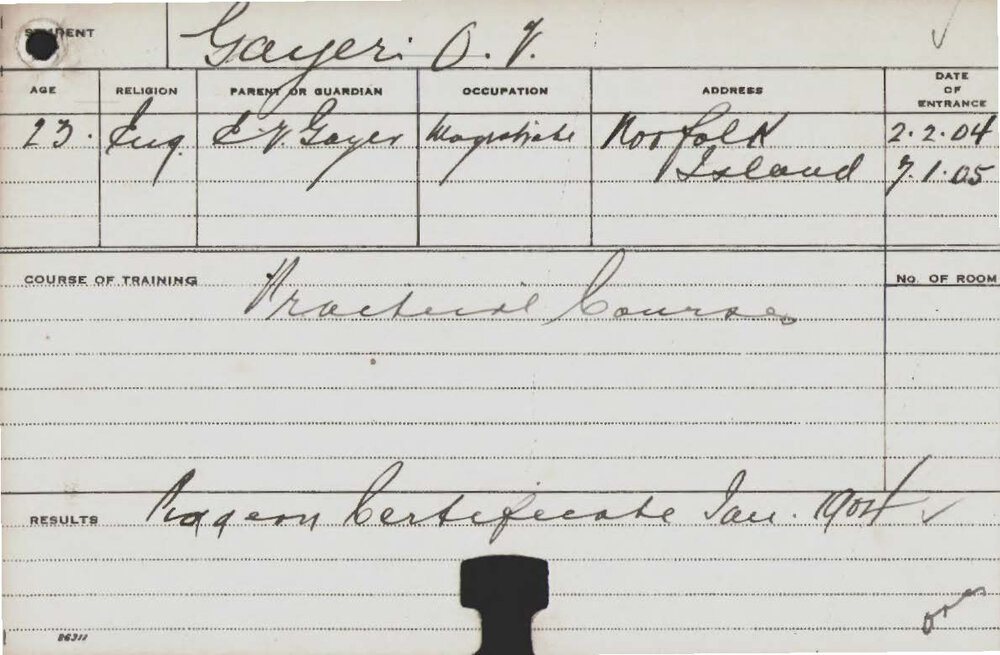 STUDENT Gayer. O. V.
AGE RELIGION PARENT OR GUARDIAN OCCUPATION ADDRESS DATE OF ENTRANCE
23. Eng. E V. Gayer Magistrate Norfolk 2.2.04
Island 7.1.05
COURSE OF TRAINING Practical Course No. OF ROOM
RESULTS Certificate Jan. 1904
86311